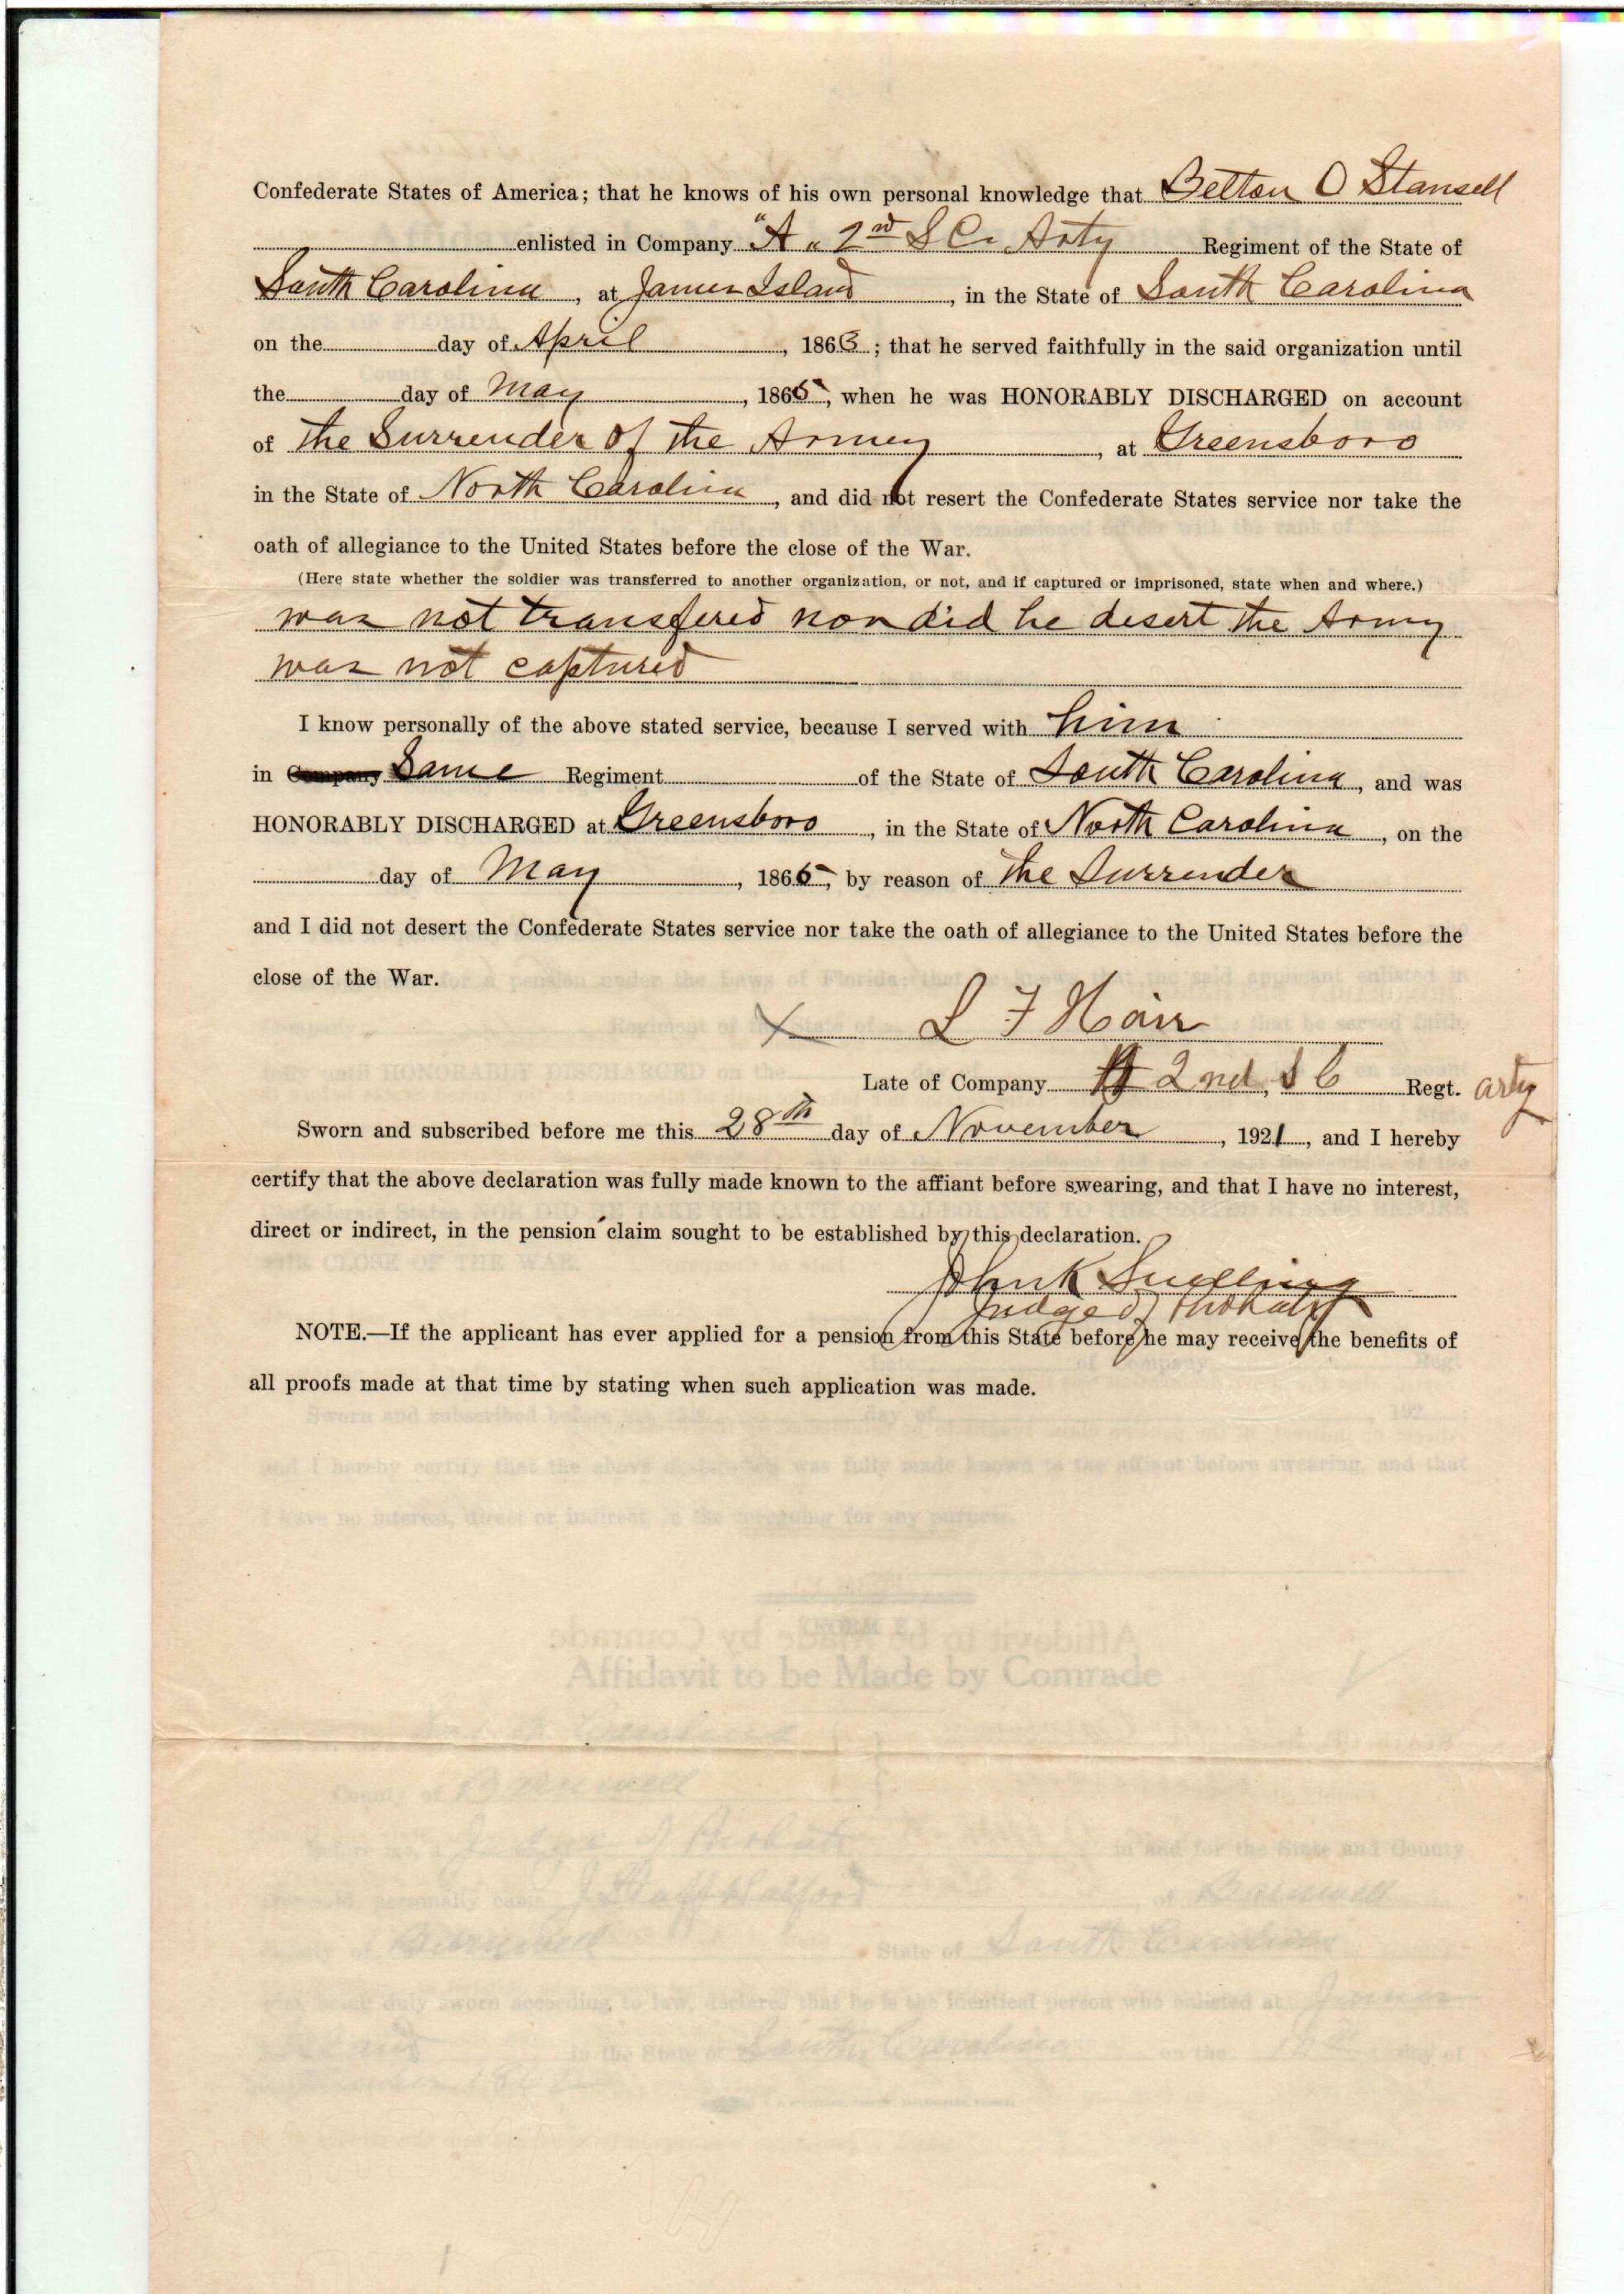 Confederate States of America; that he knows of his own personal knowledge that Belton O Stansell
enlisted in Company "A" 2nd S C. Arty Regiment of the State of
South Carolina, at James Island, in the State of South Carolina
on the day of April, 1863; that he served faithfully in the said organization until
the day of May, 1865, when he was HONORABLY DISCHARGED on account
of the Surrender of the Armey, at Greensboro
in the State of North Carolina, and did not resert the Confederate States service nor take the
oath of allegiance to the United States before the close of the War.
(Here state whether the soldier was transferred to another organization, or not, and if captured or imprisoned, state when and where.)
was not transfered nor did he desert the Army
was not captured
I know personally of the above stated service, because I served with him
in Company Same Regiment of the State of South Carolina, and was
HONORABLY DISCHARGED at Greensboro, in the State of North Carolina, on the
day of May, 1865, by reason of the Surrender
and I did not desert the Confederate States service nor take the oath of allegiance to the United States before the
close of the War.
X L F Hair
Late of Company A 2nd, S C Regt. arty
Sworn and subscribed before me this 28th day of November, 1921, and I hereby
certify that the above declaration was fully made known to the affiant before swearing, and that I have no interest,
direct or indirect, in the pension claim sought to be established by this declaration.
John K Snelling
Judge of Probate
NOTE.—If the applicant has ever applied for a pension from this State before he may receive the benefits of
all proofs made at that time by stating when such application was made.
Affidavit to be Made by Comrade